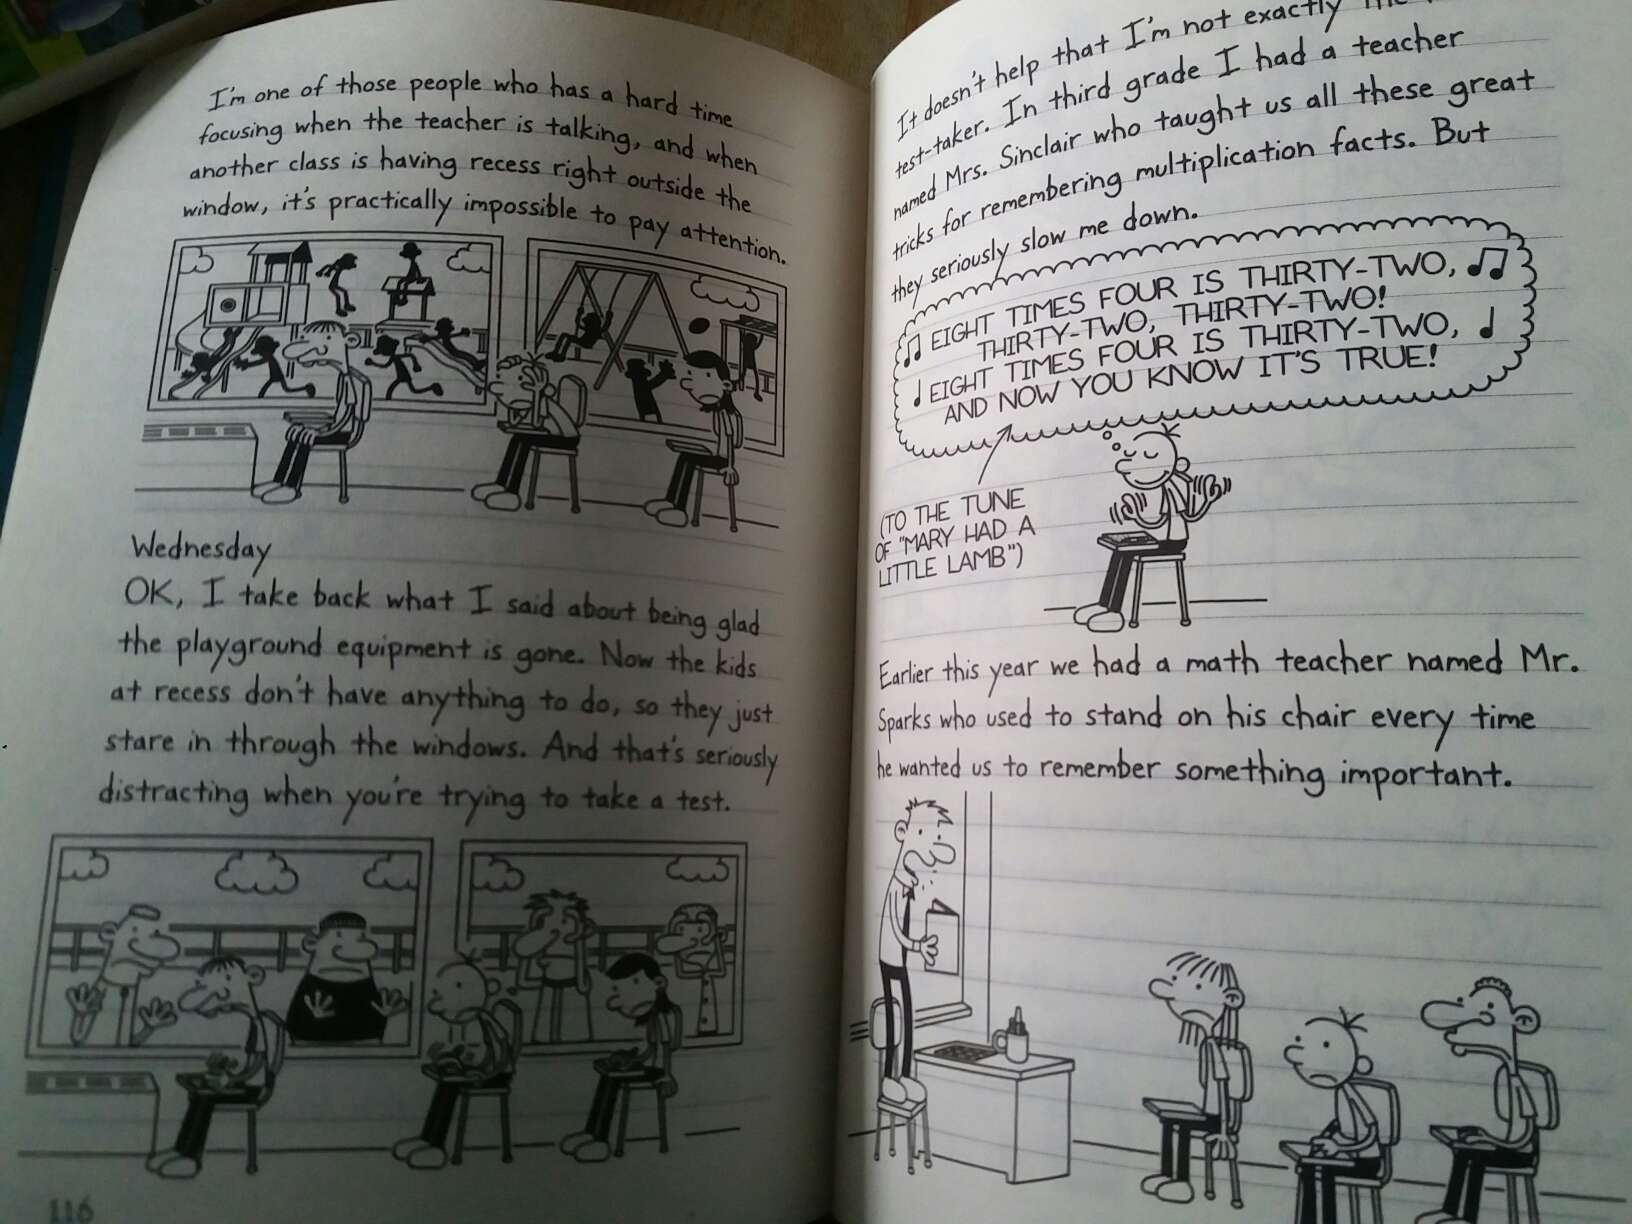 I'm one of those people who has a hard time
focusing when the teacher is talking, and when
another class is having recess right outside the
window, it's practically impossible to pay attention.
Wednesday
OK, I take back what I said about being glad
the playground equipment is gone. Now the kids
at recess don't have anything to do, so they just
stare in through the windows. And that's seriously
distracting when you're trying to take a test.
116
It doesn't help that I'm not exactly
test-taker. In third grade I had a teacher
named Mrs. Sinclair who taught us all these great
tricks for remembering multiplication facts. But
they seriously slow me down.
EIGHT TIMES FOUR IS THIRTY-TWO,
THIRTY-TWO, THIRTY-TWO!
EIGHT TIMES FOUR IS THIRTY-TWO,
AND NOW YOU KNOW IT'S TRUE!
(TO THE TUNE
OF "MARY HAD A
LITTLE LAMB")
Earlier this year we had a math teacher named Mr.
Sparks who used to stand on his chair every time
he wanted us to remember something important.